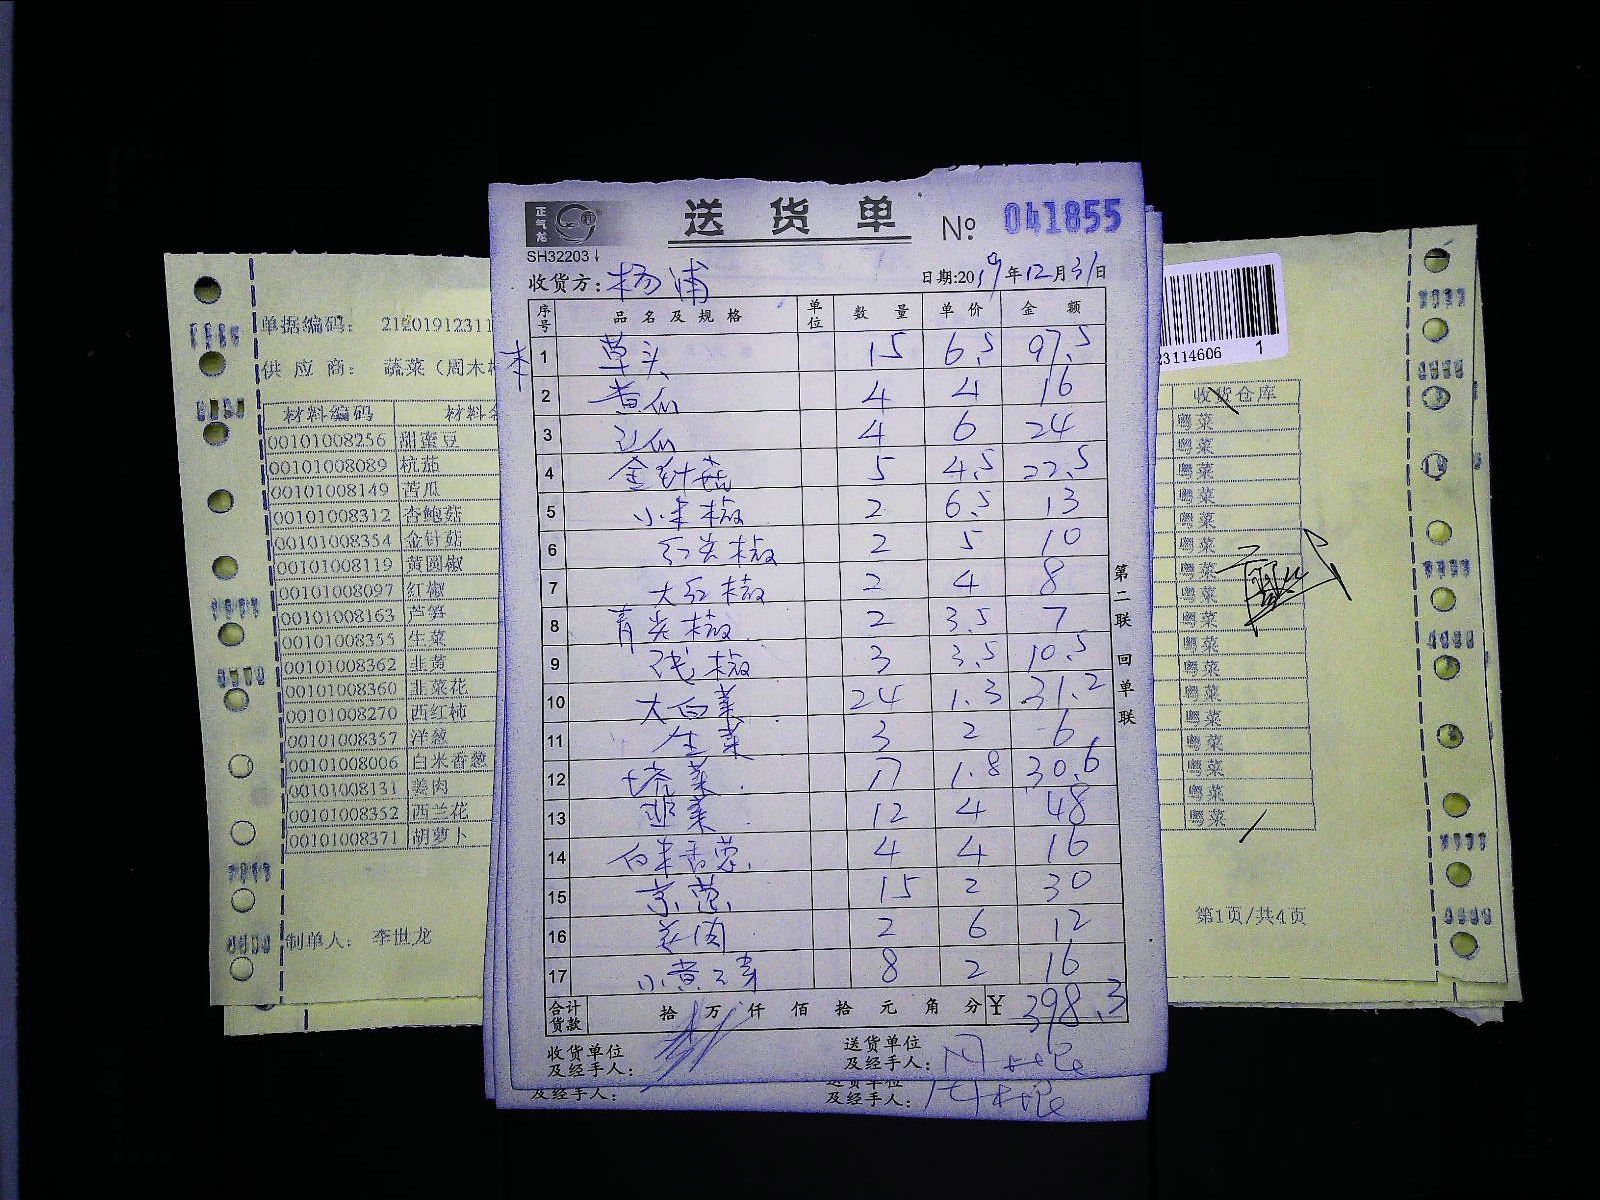 正气龙
送货单 № 041855
SH32203
收货方: 杨浦 日期:2019年12月31日
序号 品名及规格 单位 数量 单价 金额
本
1 草头 15 6.5 97.5
2 黄瓜 4 4 16
3 瓜 4 6 24
4 金针菇 5 4.5 22.5
5 小米椒 2 6.5 13
6 红尖椒 2 5 10
7 大红椒 2 4 8
8 青尖椒 2 3.5 7
9 椒 3 3.5 10.5
10 大白菜 24 1.3 31.2
11 生菜 3 2 6
12 塔菜 17 1.8 30.6
13 韭菜 12 4 48
14 白米香葱 4 4 16
15 京葱 15 2 30
16 姜肉 2 6 12
17 小黄 8 2 16
合计货款 拾 万 仟 佰 拾 元 角 分 ¥ 398.3
收货单位及经手人: 送货单位及经手人: 周木根
及经手人: 送货单位及经手人: 周木根
第二联 回单联
单据编码: 2120191231
供应商: 蔬菜（周木
材料编码 材料
00101008256 甜蜜豆
00101008089 杭茄
00101008149 苦瓜
00101008312 杏鲍菇
00101008354 金针菇
00101008119 黄圆椒
00101008097 红椒
00101008163 芦笋
00101008355 生菜
00101008362 韭黄
00101008360 韭菜花
00101008270 西红柿
00101008357 洋葱
00101008006 白米香葱
00101008131 姜肉
00101008352 西兰花
00101008371 胡萝卜
制单人: 李世龙
23114606 1
收货仓库
粤菜
粤菜
粤菜
粤菜
粤菜
粤菜
粤菜
粤菜
粤菜
粤菜
粤菜
粤菜
粤菜
粤菜
粤菜
粤菜
粤菜
第1页/共4页